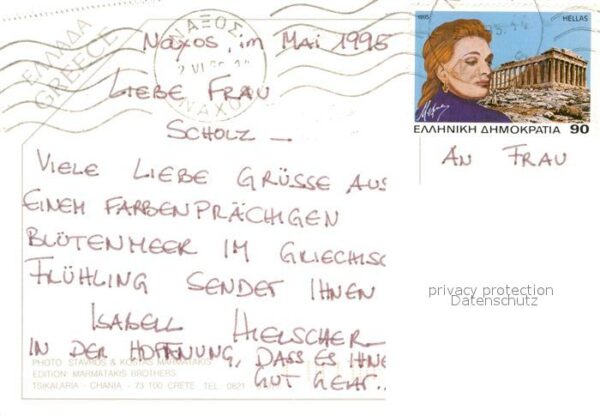 ΝΑΞΟΣ
ΝΑΧΟ
ΕΛΛΑΔΑ
GREECE
Naxos, im Mai 1995
LIEBE FRAU
SCHOLZ –
VIELE LIEBE GRÜSSE AUS
EINEM FARBENPRÄCHIGEN
BLÜTENMEER IM GRIECHISC
FRÜHLING SENDET IHNEN
ISABELL HIELSCHER
IN DER HOFFNUNG, DASS ES IHNE
GUT GEHT..
PHOTO: STAVROS & KOSTAS MARMATAKIS
EDITION: MARMATAKIS BROTHERS
TSIKALARIA - CHANIA - 73 100 CRETE TEL. 0821
1995
HELLAS
ΕΛΛΗΝΙΚΗ ΔΗΜΟΚΡΑΤΙΑ 90
AN FRAU
privacy protection
Datenschutz